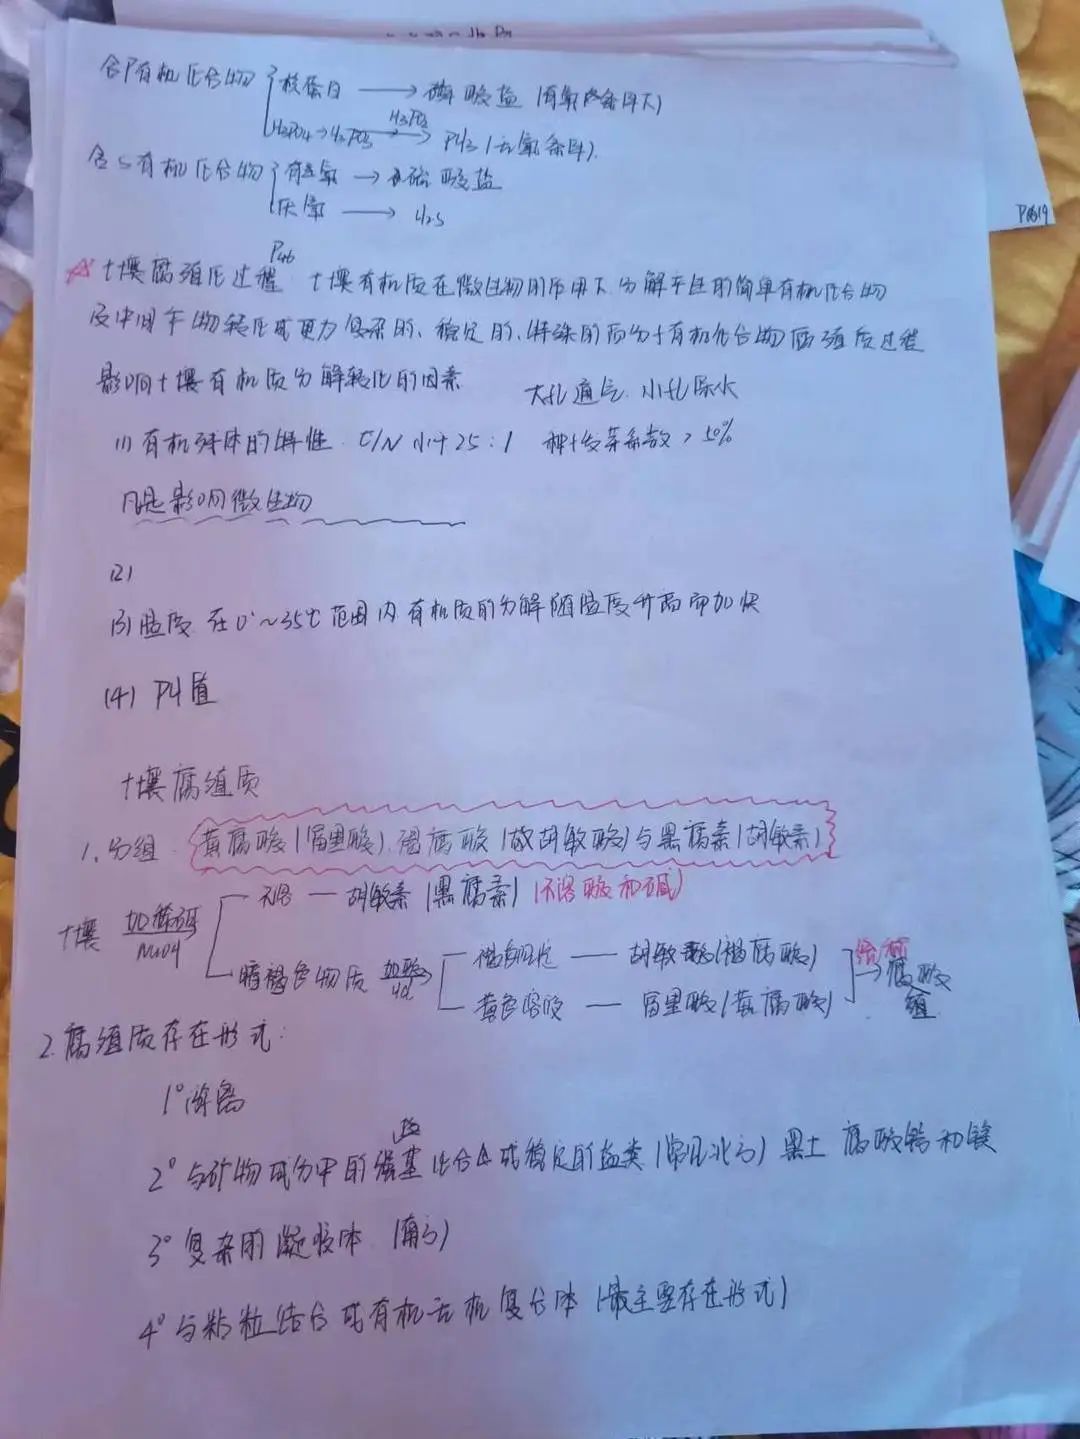 含P有机化合物 核蛋白 → 磷酸盐 (有氧条件下)
H₃PO₄→H₃PO₃ H₃PO₂ → PH₃ (无氧条件)
含S有机化合物 有氧 → 硫酸盐
厌氧 → H₂S
P₄₆
土壤腐殖化过程 土壤有机质在微生物的作用下 分解产生的简单有机化合物
及中间产物转化成更为复杂的、稳定的、特殊的高分子有机化合物 腐殖质过程
影响土壤有机质分解转化的因素 大孔通气 小孔保水
(1) 有机残体的特性 C/N 小于25:1 种子发芽系数 > 50%
凡是影响微生物
(2)
(3) 温度 在0°~35℃范围内有机质的分解随温度升高而加快
(4) PH值
土壤腐殖质
1. 分组 黄腐酸(富里酸)、褐腐酸(或胡敏酸)与黑腐素(胡敏素)
土壤 加稀碱 NaOH 不溶 — 胡敏素 (黑腐素) (不溶酸和碱)
暗褐色物质 加酸 Hcl 褐色沉淀 — 胡敏酸(褐腐酸)
黄色溶液 — 富里酸(黄腐酸) 给称 → 腐殖酸
2. 腐殖质存在形式:
1° 游离
2° 与矿物成分中的强盐基化合 成稳定的盐类 (常见北方) 黑土 腐酸钙和镁
3° 复杂的凝胶体 (南方)
4° 与粘粒结合成有机无机复合体 (最主要存在形式)